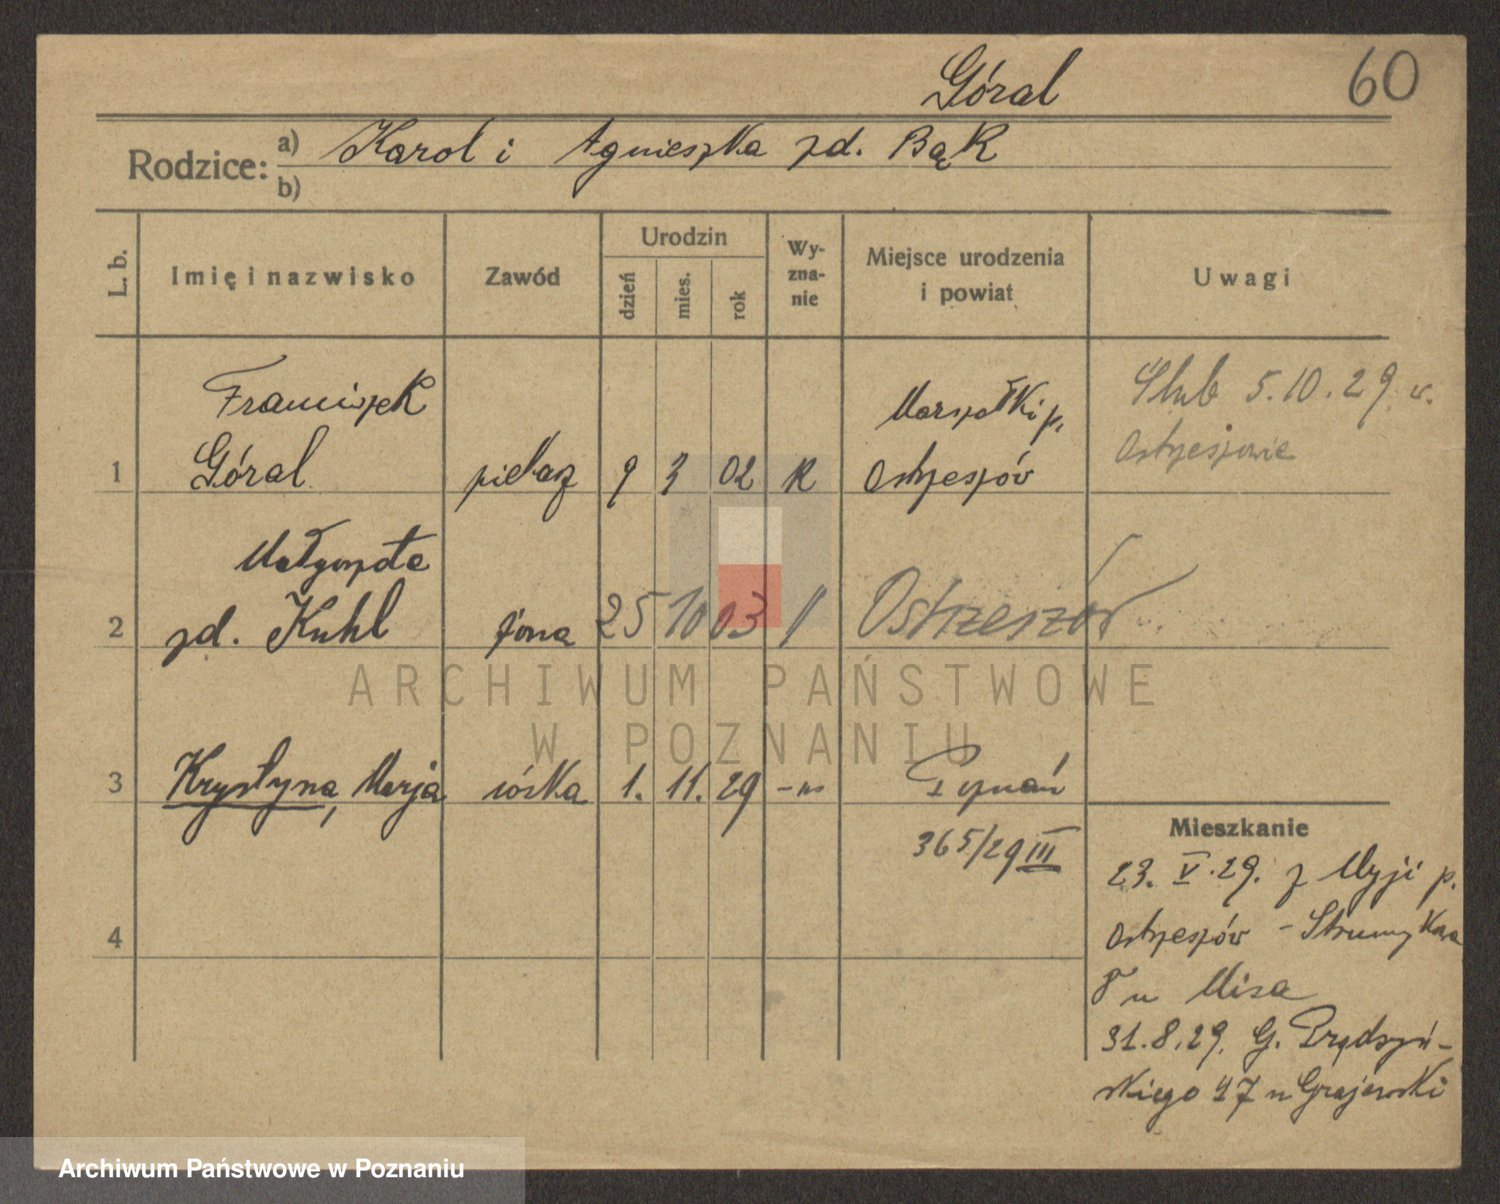 Góral
60
Rodzice:
a) Karol i Agnieszka zd. Bąk
b)
L. b.
Imię i nazwisko
Zawód
Urodzin
dzień
mies.
rok
Wy-
zna-
nie
Miejsce urodzenia
i powiat
Uwagi
Franciszek
Góral
1
piekarz
9
3
02
K
Marszałki p.
Ostrzeszów
Slub 5.10.29 w.
Ostrzeszowie
Małgorzata
2
zd. Kuhl
żona
25
10
03
Ostrzeszów
ARCHIWUM PAŃSTWOWE
W POZNANIU
3
Krystyna, Marja
córka
1.
11.
29
Poznań
365/29 III
4
Mieszkanie
23. V. 29. z p.
Ostrzeszów - Strumykowa
8 u Misa
31.8.29. G. Prądzyń-
skiego 47 u Grajewski
Archiwum Państwowe w Poznaniu